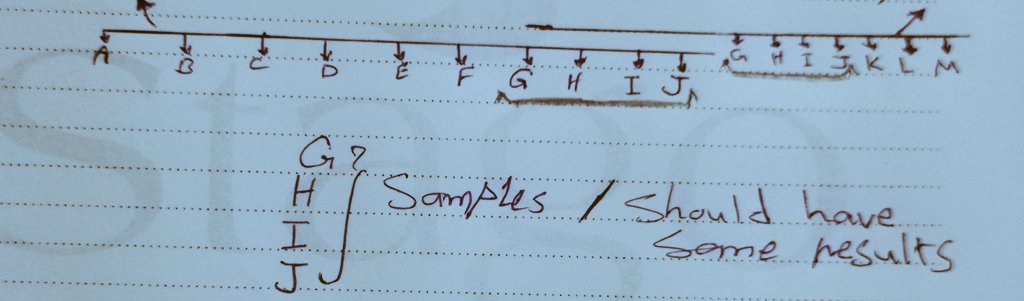 A B C D E F G H I J
G H I J K L M
G
H Samples / Should have
I some results
J